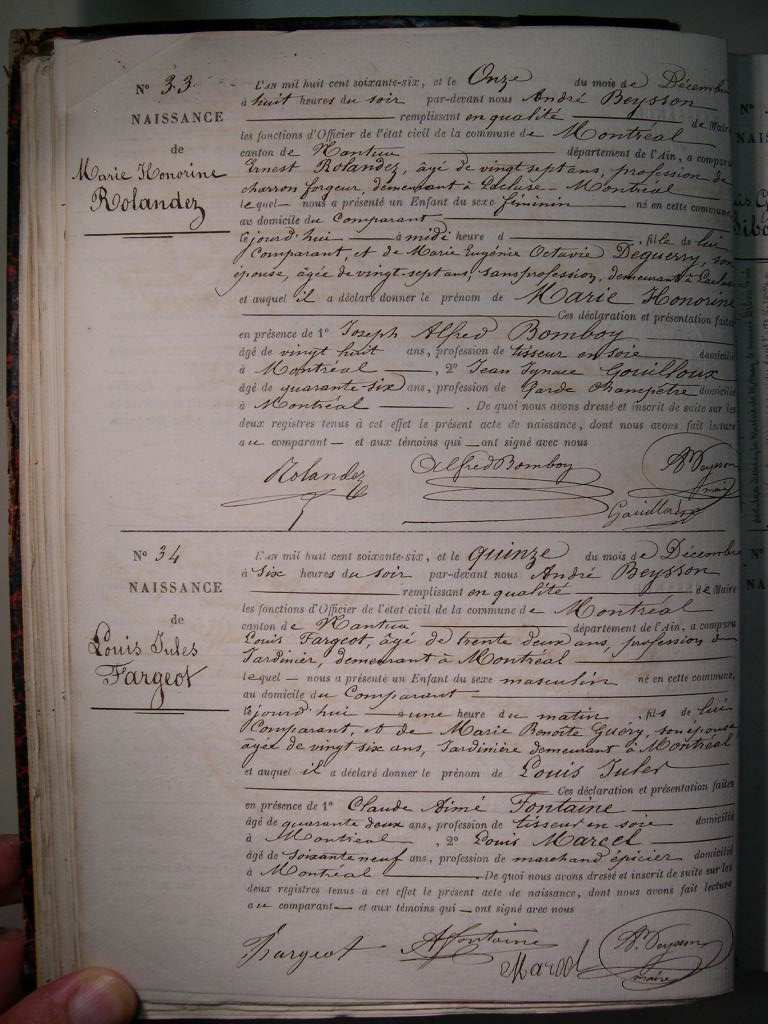 N° 33
NAISSANCE
de
Marie Honorine
Rolandez
L'an mil huit cent soixante-six, et le Onze du mois de Décembre
à huit heures du soir par-devant nous André Beysson
remplissant en qualité de Maire
les fonctions d'Officier de l'état civil de la commune de Montréal
canton de Nantua département de l'Ain, a comparu
Ernest Rolandez, âgé de vingt sept ans, profession de
charron forgeur, demeurant à Lacluse - Montréal
lequel nous a présenté un Enfant du sexe féminin né en cette commune
au domicile du Comparant
le jourd'hui à midi heure d , fille de lui
Comparant, et de Marie Eugénie Octavie Deguerry, son
épouse, âgée de vingt sept ans, sans profession, demeurant à Lacluse
et auquel il a déclaré donner le prénom de Marie Honorine
Ces déclaration et présentation faites
en présence de 1° Joseph Alfred Bomboy
âgé de vingt huit ans, profession de tisseur en soie domicilié
à Montréal , 2° Jean Ignace Gouilloux
âgé de quarante six ans, profession de Garde Champêtre domicilié
à Montréal . De quoi nous avons dressé et inscrit de suite sur les
deux registres tenus à cet effet le présent acte de naissance, dont nous avons fait lecture
au comparant et aux témoins qui ont signé avec nous
Rolandez Alfred Bomboy A. Beysson
maire
N° 34
NAISSANCE
de
Louis Jules
Fargeot
L'an mil huit cent soixante-six, et le quinze du mois de Décembre
à six heures du soir par-devant nous André Beysson
remplissant en qualité de Maire
les fonctions d'Officier de l'état civil de la commune de Montréal
canton de Nantua département de l'Ain, a comparu
Louis Fargeot, âgé de trente deux ans, profession de
Jardinier, demeurant à Montréal
lequel nous a présenté un Enfant du sexe masculin né en cette commune,
au domicile du Comparant
le jourd'hui à une heure du matin , fils de lui
Comparant, et de Marie Benoîte Guéry, son épouse
âgée de vingt six ans, Jardinière demeurant à Montréal
et auquel il a déclaré donner le prénom de Louis Jules
Ces déclaration et présentation faites
en présence de 1° Claude Aimé Fontaine
âgé de quarante deux ans, profession de tisseur en soie domicilié
à Montréal , 2° Louis Marcel
âgé de soixante neuf ans, profession de marchand épicier domicilié
à Montréal . De quoi nous avons dressé et inscrit de suite sur les
deux registres tenus à cet effet le présent acte de naissance, dont nous avons fait lecture
au comparant et aux témoins qui ont signé avec nous
Fargeot A Fontaine
Marcel A. Beysson
maire